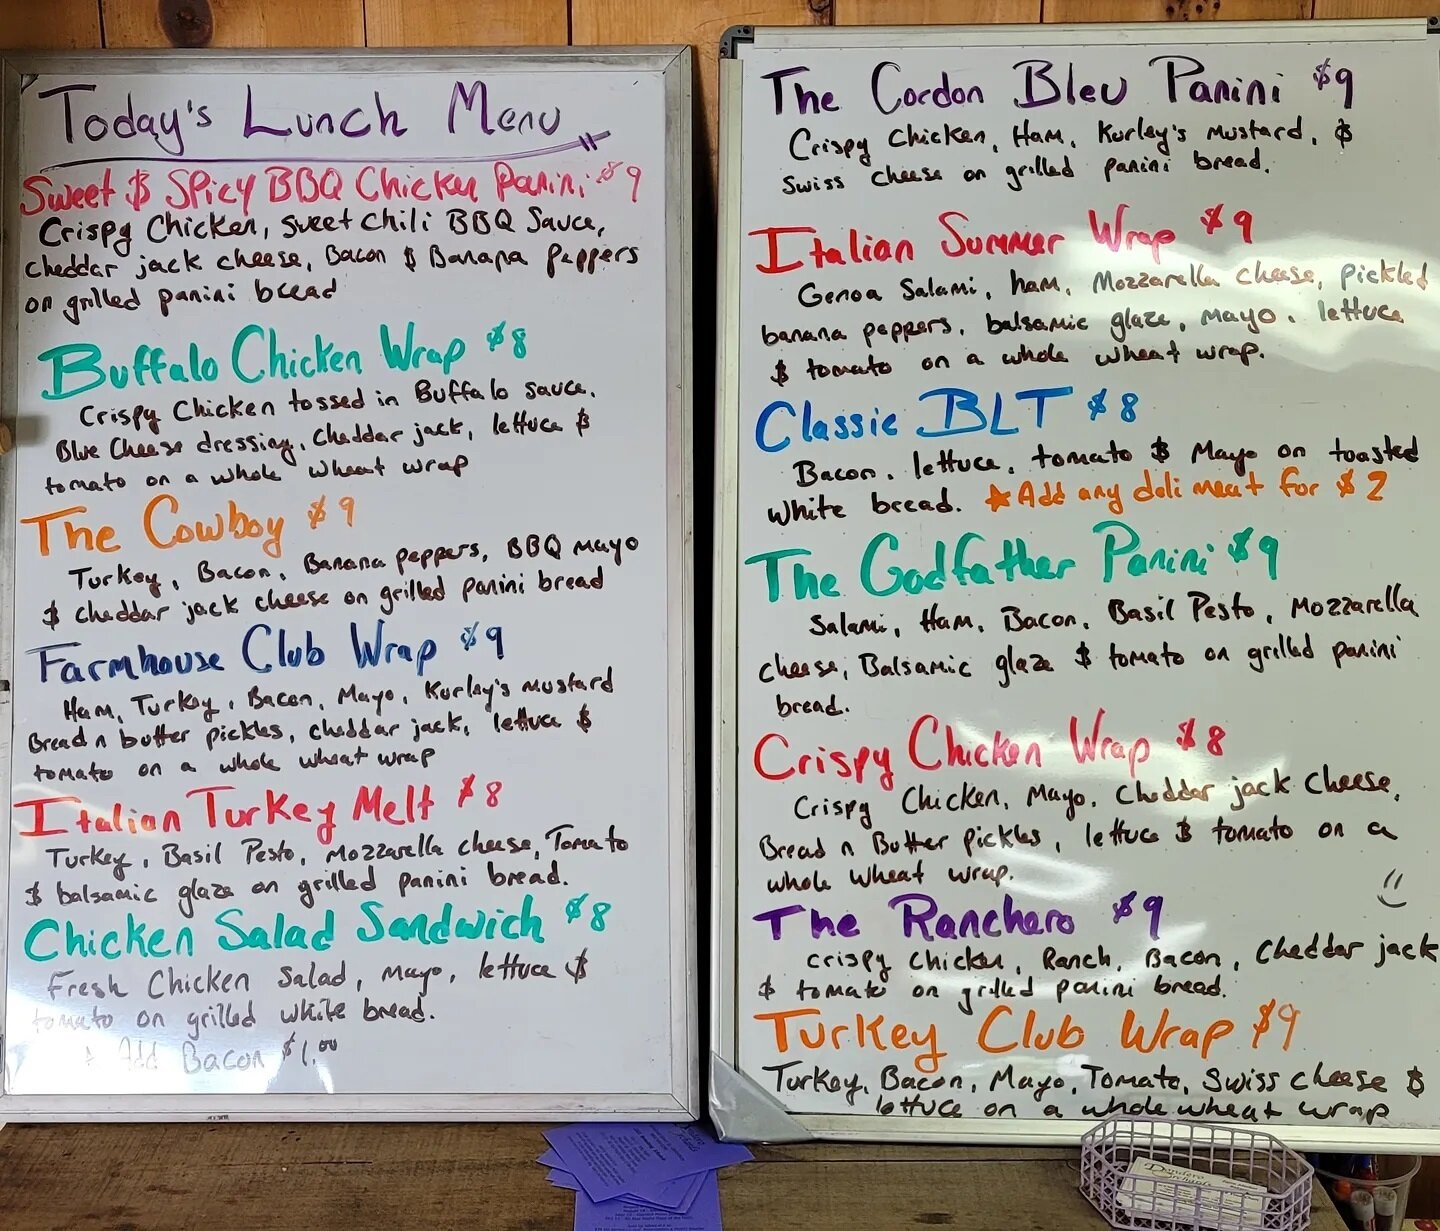 Today's Lunch Menu
Sweet $ Spicy BBQ Chicken Panini $9
Crispy Chicken, Sweet Chili BBQ Sauce,
cheddar jack cheese, Bacon $ Banana Peppers
on grilled panini bread
Buffalo Chicken Wrap $8
Crispy Chicken tossed in Buffalo sauce,
Blue Cheese dressing, Cheddar jack, lettuce $
tomato on a whole wheat wrap
The Cowboy $9
Turkey, Bacon, Banana peppers, BBQ mayo
$ cheddar jack cheese on grilled panini bread
Farmhouse Club Wrap $9
Ham, Turkey, Bacon, Mayo, Kurley's mustard
Bread n butter pickles, cheddar jack, lettuce $
tomato on a whole wheat wrap
Italian Turkey Melt $8
Turkey, Basil Pesto, mozzarella cheese, Tomato
$ balsamic glaze on grilled panini bread.
Chicken Salad Sandwich $8
Fresh Chicken Salad, Mayo, lettuce $
tomato on grilled white bread.
* Add Bacon $1.00
The Cordon Bleu Panini $9
Crispy Chicken, Ham, Kurley's Mustard, $
Swiss cheese on grilled panini bread.
Italian Summer Wrap $9
Genoa Salami, ham, Mozzarella cheese, pickled
banana peppers, balsamic glaze, mayo, lettuce
$ tomato on a whole wheat wrap.
Classic BLT $8
Bacon, lettuce, tomato $ Mayo on toasted
white bread. ★Add any deli meat for $2
The Godfather Panini $9
Salami, Ham, Bacon, Basil Pesto, Mozzarella
cheese, Balsamic glaze $ tomato on grilled panini
bread.
Crispy Chicken Wrap $8
Crispy Chicken, Mayo, Cheddar jack cheese,
Bread n Butter pickles, lettuce $ tomato on a
whole wheat wrap.
The Ranchero $9
crispy chicken, Ranch, Bacon, Cheddar jack
$ tomato on grilled panini bread.
Turkey Club Wrap $9
Turkey, Bacon, Mayo, Tomato, Swiss cheese $
lettuce on a whole wheat wrap